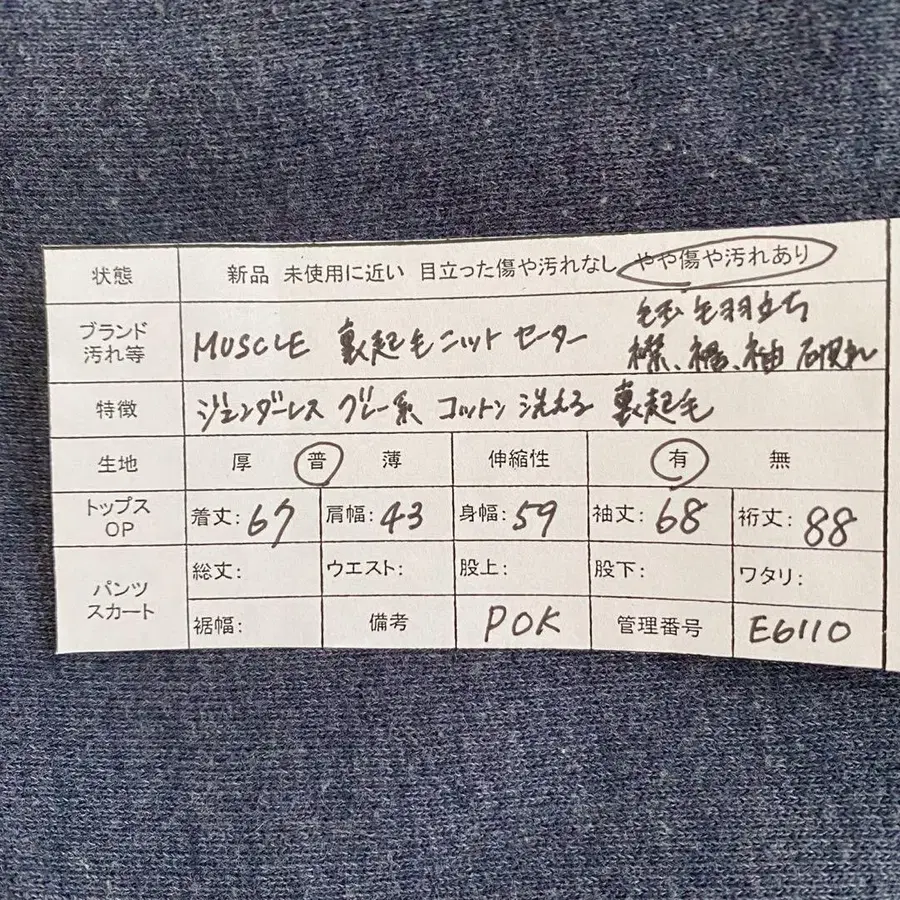 状態 新品 未使用に近い 目立った傷や汚れなし やや傷や汚れあり
ブランド
汚れ等
MUSCLE 裏起毛ニット セーター
毛玉 毛羽立ち
襟、裾、袖 破れ
特徴 ジェンダーレス グレー系 コットン 洗える 裏起毛
生地 厚 普 薄 伸縮性 有 無
トップス
OP
着丈:67 肩幅:43 身幅:59 袖丈:68 裄丈:88
パンツ
スカート
総丈: ウエスト: 股上: 股下: ワタリ:
裾幅: 備考 POK 管理番号 E6110